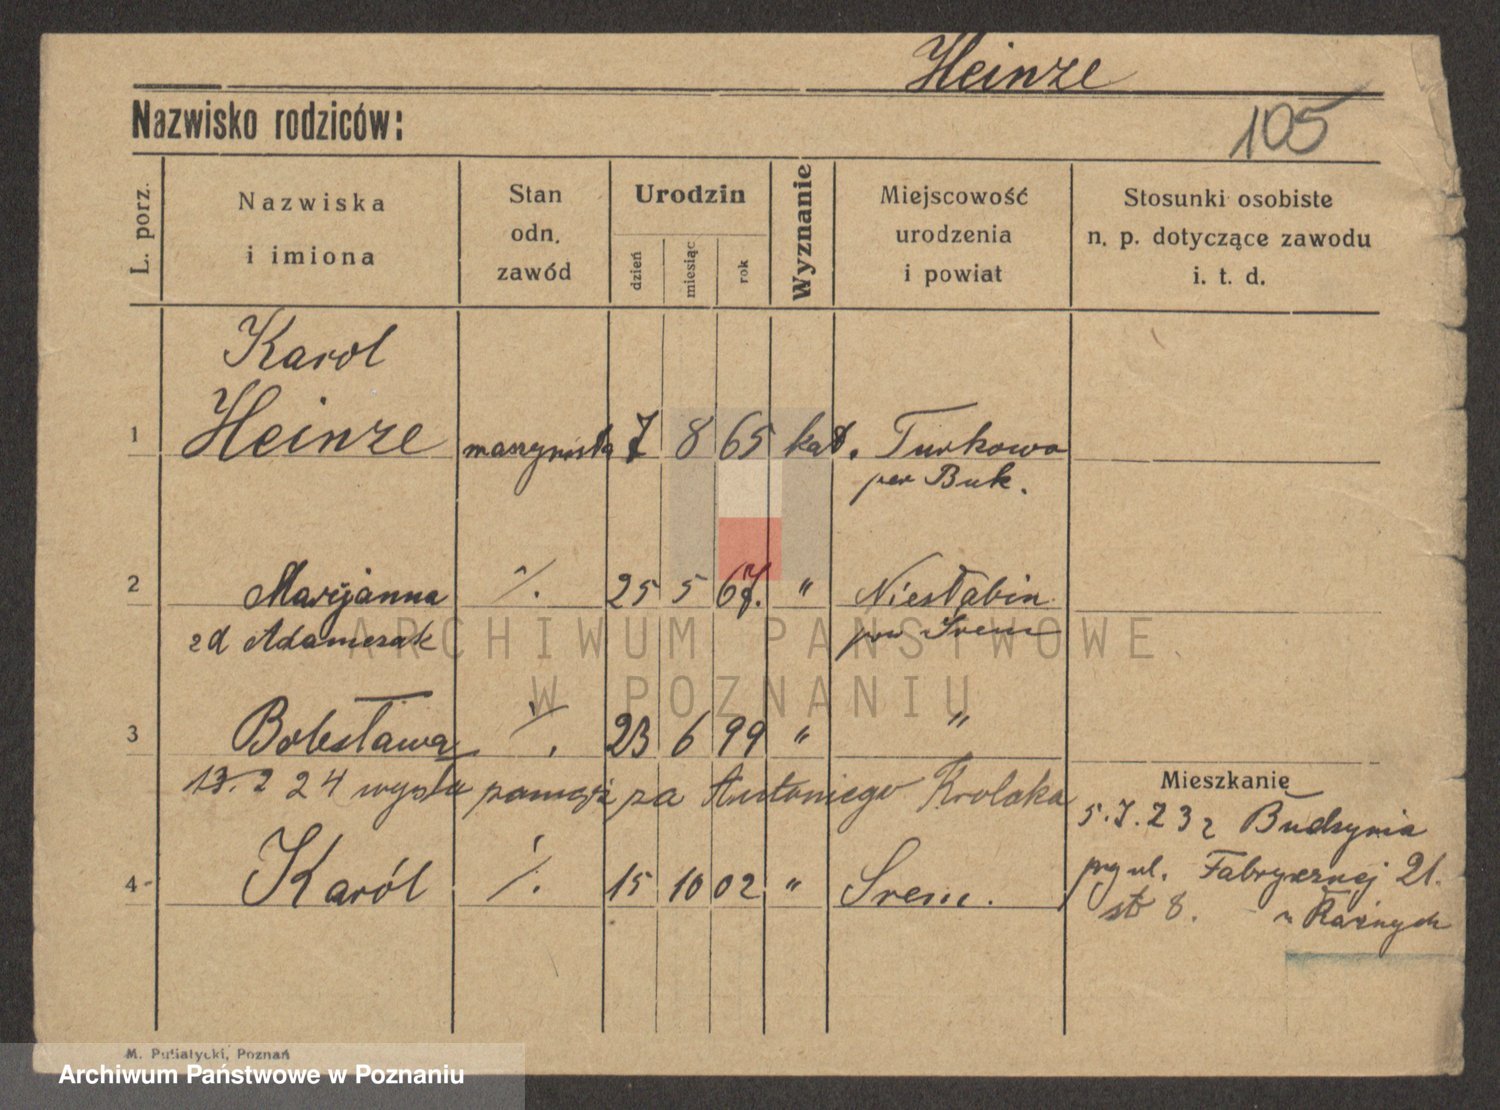 Heinze
Nazwisko rodziców:
105
L. porz.
Nazwiska
i imiona
Stan
odn.
zawód
Urodzin
dzień
miesiąc
rok
Wyznanie
Miejscowość
urodzenia
i powiat
Stosunki osobiste
n. p. dotyczące zawodu
i. t. d.
Karol
1 Heinze maszynista 7 8 65 kat. Turkowo
pow Buk.
2 Maryjanna ./. 25 5 67. " Niesłabin
zd Adamczak pow Srem
ARCHIWUM PAŃSTWOWE
W POZNANIU
3 Bolesława ./. 23 6 99 " "
2 24 wyszła za Antoniego Krolaka
Mieszkanie
5.7.23 z Budzynia
4 Karól ./. 15 10 02 " Srem.
przy ul. Fabrycznej 21.
st 8.
M. Putiatycki, Poznań
Archiwum Państwowe w Poznaniu